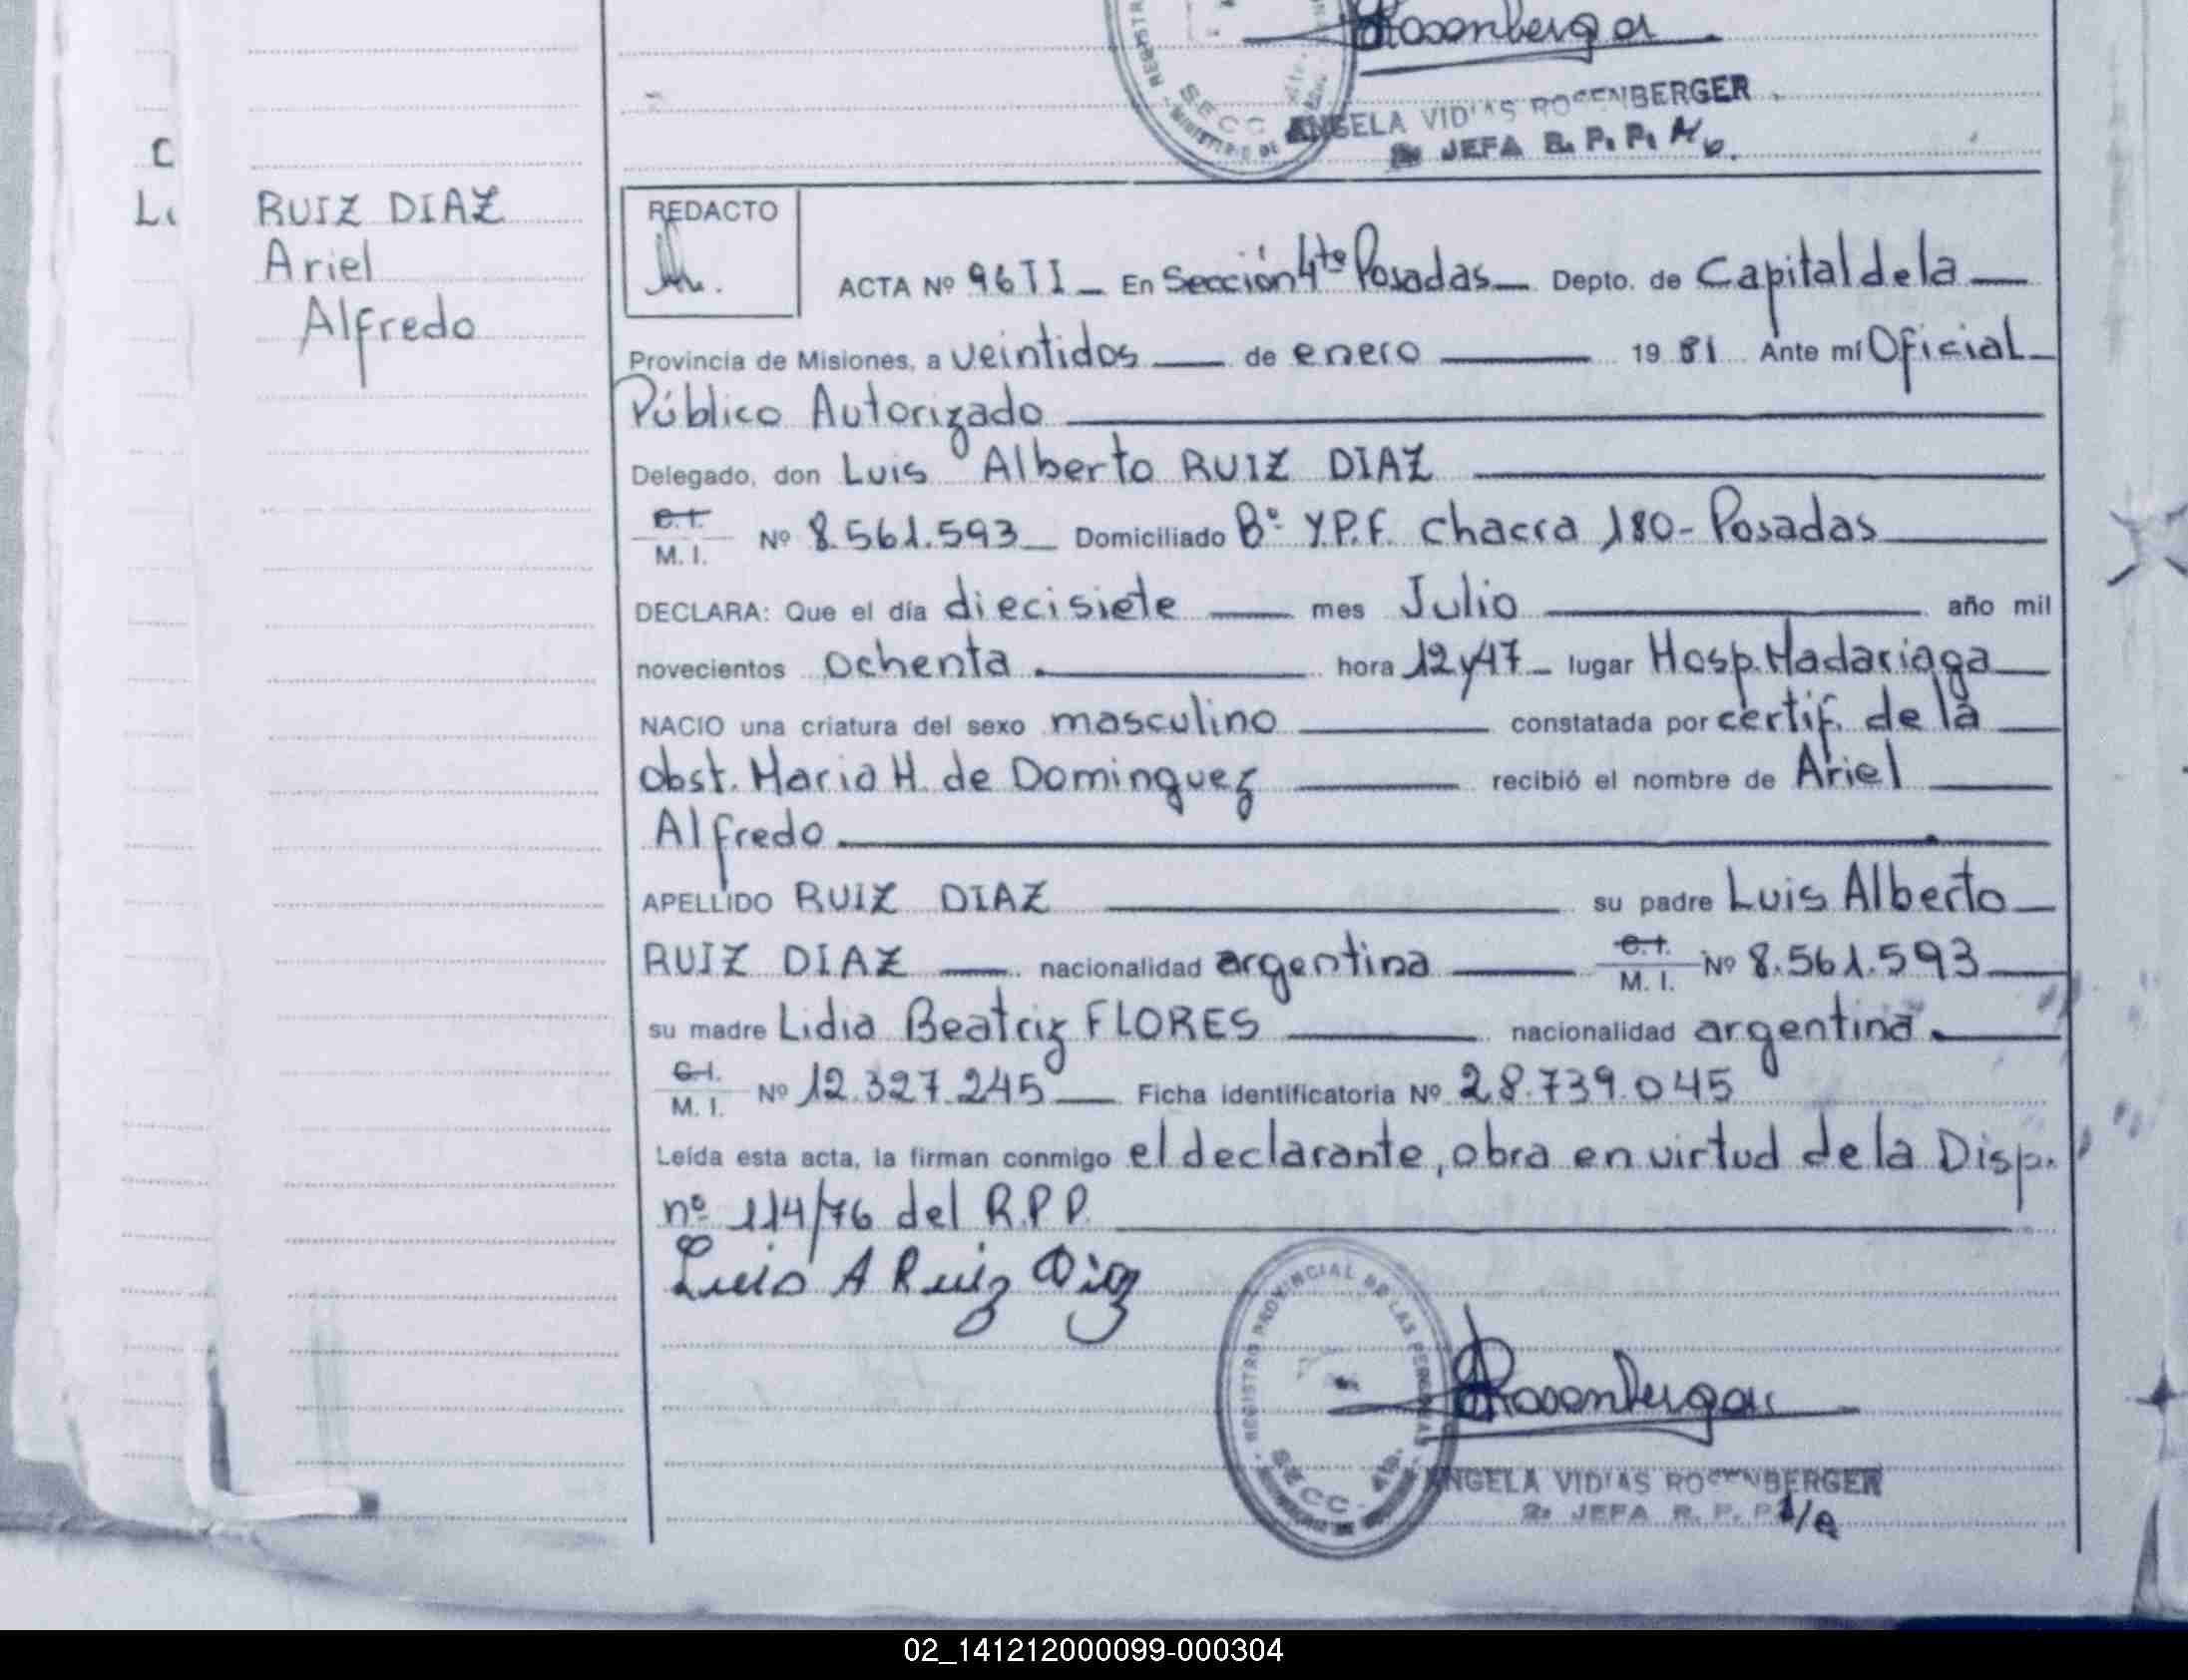 Rosenberger
ANGELA VIDIAS ROSENBERGER
2a JEFA R. P. P.
SECC
C
RUIZ DIAZ
Ariel
Alfredo
REDACTO
ACTA Nº 96 TI En Sección 4ta Posadas Depto. de Capital de la
Provincia de Misiones, a veintidos de enero 1981 Ante mí Oficial
Público Autorizado
Delegado, don Luis Alberto RUIZ DIAZ
C.I.
M. I. Nº 8.561.593 Domiciliado Bº Y.P.F. chacra 180- Posadas
DECLARA: Que el día diecisiete mes Julio año mil
novecientos ochenta hora 12y47 lugar Hosp. Madariaga
NACIO una criatura del sexo masculino constatada por certif. de la
obst. Maria H. de Dominguez recibió el nombre de Ariel
Alfredo
APELLIDO RUIZ DIAZ su padre Luis Alberto
RUIZ DIAZ nacionalidad argentina C.I. M. I. Nº 8.561.593
su madre Lidia Beatriz FLORES nacionalidad argentina
C.I.
M. I. Nº 12.327.245 Ficha identificatoria Nº 28.739.045
Leída esta acta, la firman conmigo el declarante, obra en virtud de la Disp.
nº 114/76 del R.P.P.
Luis A Ruiz Diaz
REGISTRO PROVINCIAL DE LAS PERSONAS
SECC. 4ta.
Rosenberger
ANGELA VIDIAS ROSENBERGER
2a JEFA R. P. P.
02_141212000099-000304